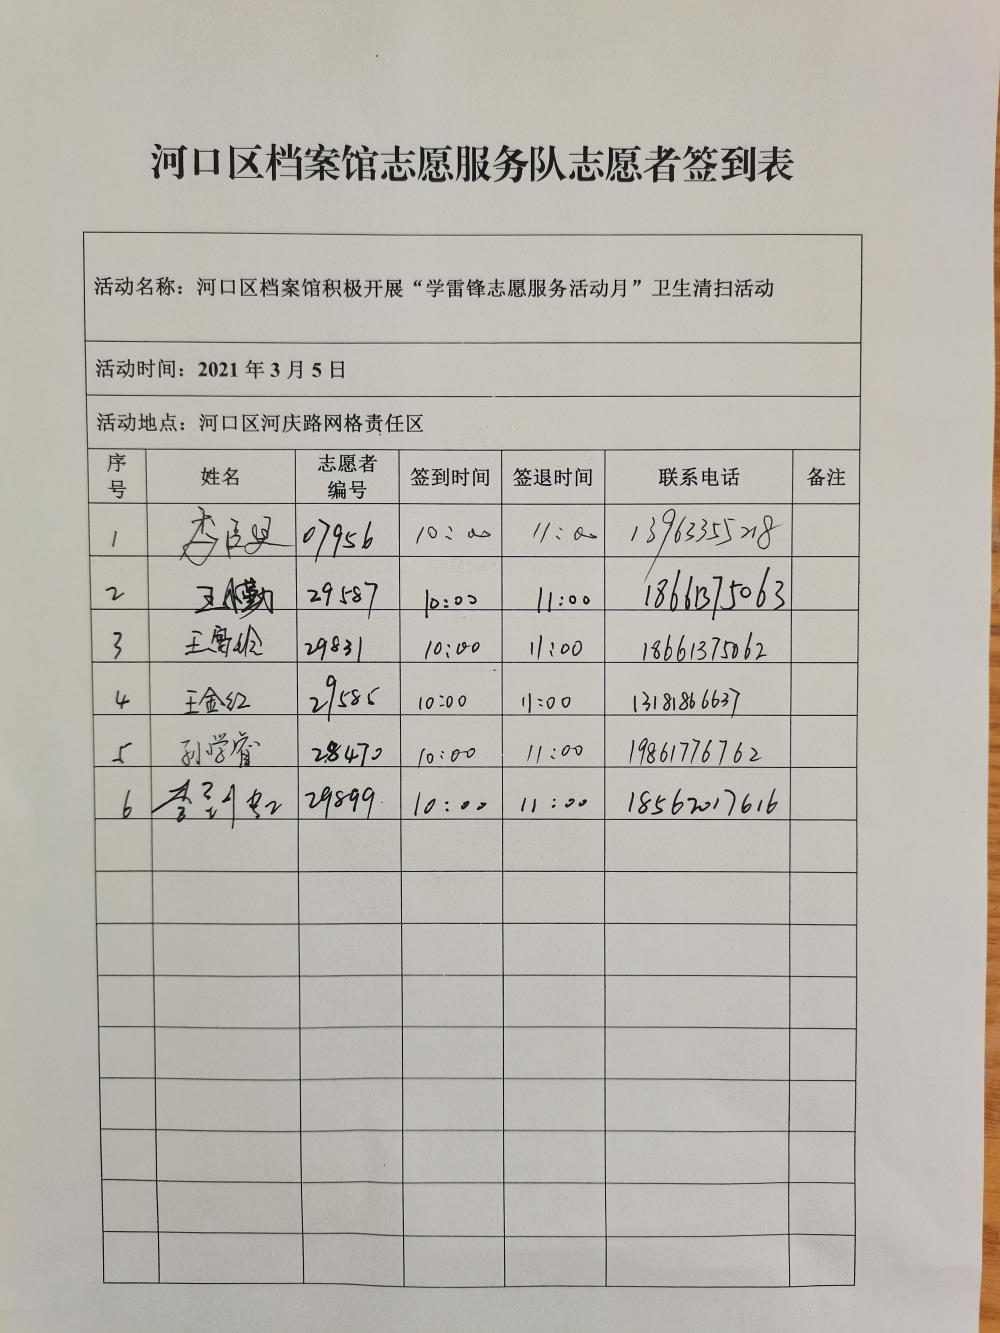 河口区档案馆志愿服务队志愿者签到表
活动名称：河口区档案馆积极开展“学雷锋志愿服务活动月”卫生清扫活动
活动时间：2021年3月5日
活动地点：河口区河庆路网格责任区
序号 姓名 志愿者编号 签到时间 签退时间 联系电话 备注
1 07956 10:00 11:00 13963355218
2 29587 10:00 11:00 18661375063
3 29831 10:00 11:00 18661375062
4 王金红 29585 10:00 11:00 13181866637
5 孙学睿 28470 10:00 11:00 19861776762
6 29899 10:00 11:00 18562017616